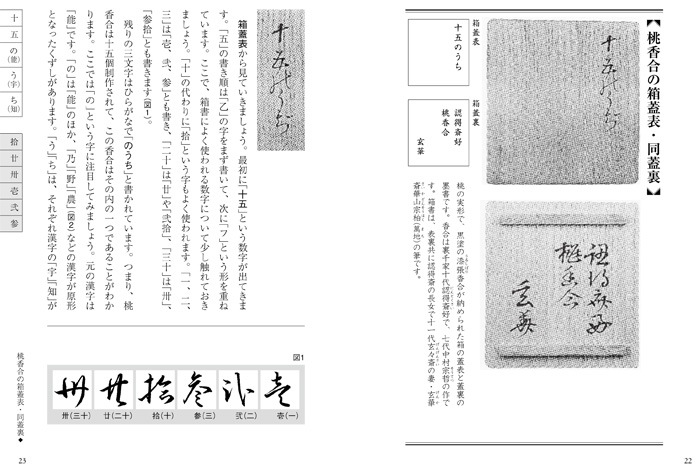 【桃香合の箱蓋表・同蓋裏】
十五のうち
認得斎好
桃香合
玄華
箱蓋表
十五のうち
箱蓋裏
認得斎好
桃香合
玄華
桃の実形で、黒塗の張香合が納められた箱の蓋表と蓋裏の
墨書です。香合は裏千家十代認得斎好で、七代中村宗哲の作で
す。箱書は、表裏共に認得斎の長女で十一代玄々斎の妻・玄華
斎華山宗柏(萬地)の筆です。
22
十五のうち
箱蓋表から見ていきましょう。最初に「十五」という数字が出てきま
す。「五」の書き順は「乙」の字をまず書いて、次に「フ」という形を重ね
ています。ここで、箱書によく使われる数字について少し触れておき
ましょう。「十」の代わりに「拾」という字もよく使われます。「一、二、
三」は「壱、弐、参」とも書き、「二十」は「廿」や「弐拾」、「三十」は「卅」、
「参拾」とも書きます(図1)。
残りの三文字はひらがなで「のうち」と書かれています。つまり、桃
香合は十五個制作されて、この香合はその内の一つであることがわか
ります。ここでは「の」という字に注目してみましょう。元の漢字は
「能」です。「の」は「能」のほか、「乃」「野」「農」(図2)などの漢字が原形
となったくずしがあります。「う」「ち」は、それぞれ漢字の「宇」「知」が
図1
壱(一)
弐(二)
参(三)
拾(十)
廿(二十)
卅(三十)
十
五
の(能)
う(宇)
ち(知)
拾
廿
卅
壱
弐
参
桃香合の箱蓋表・同蓋裏◆
23